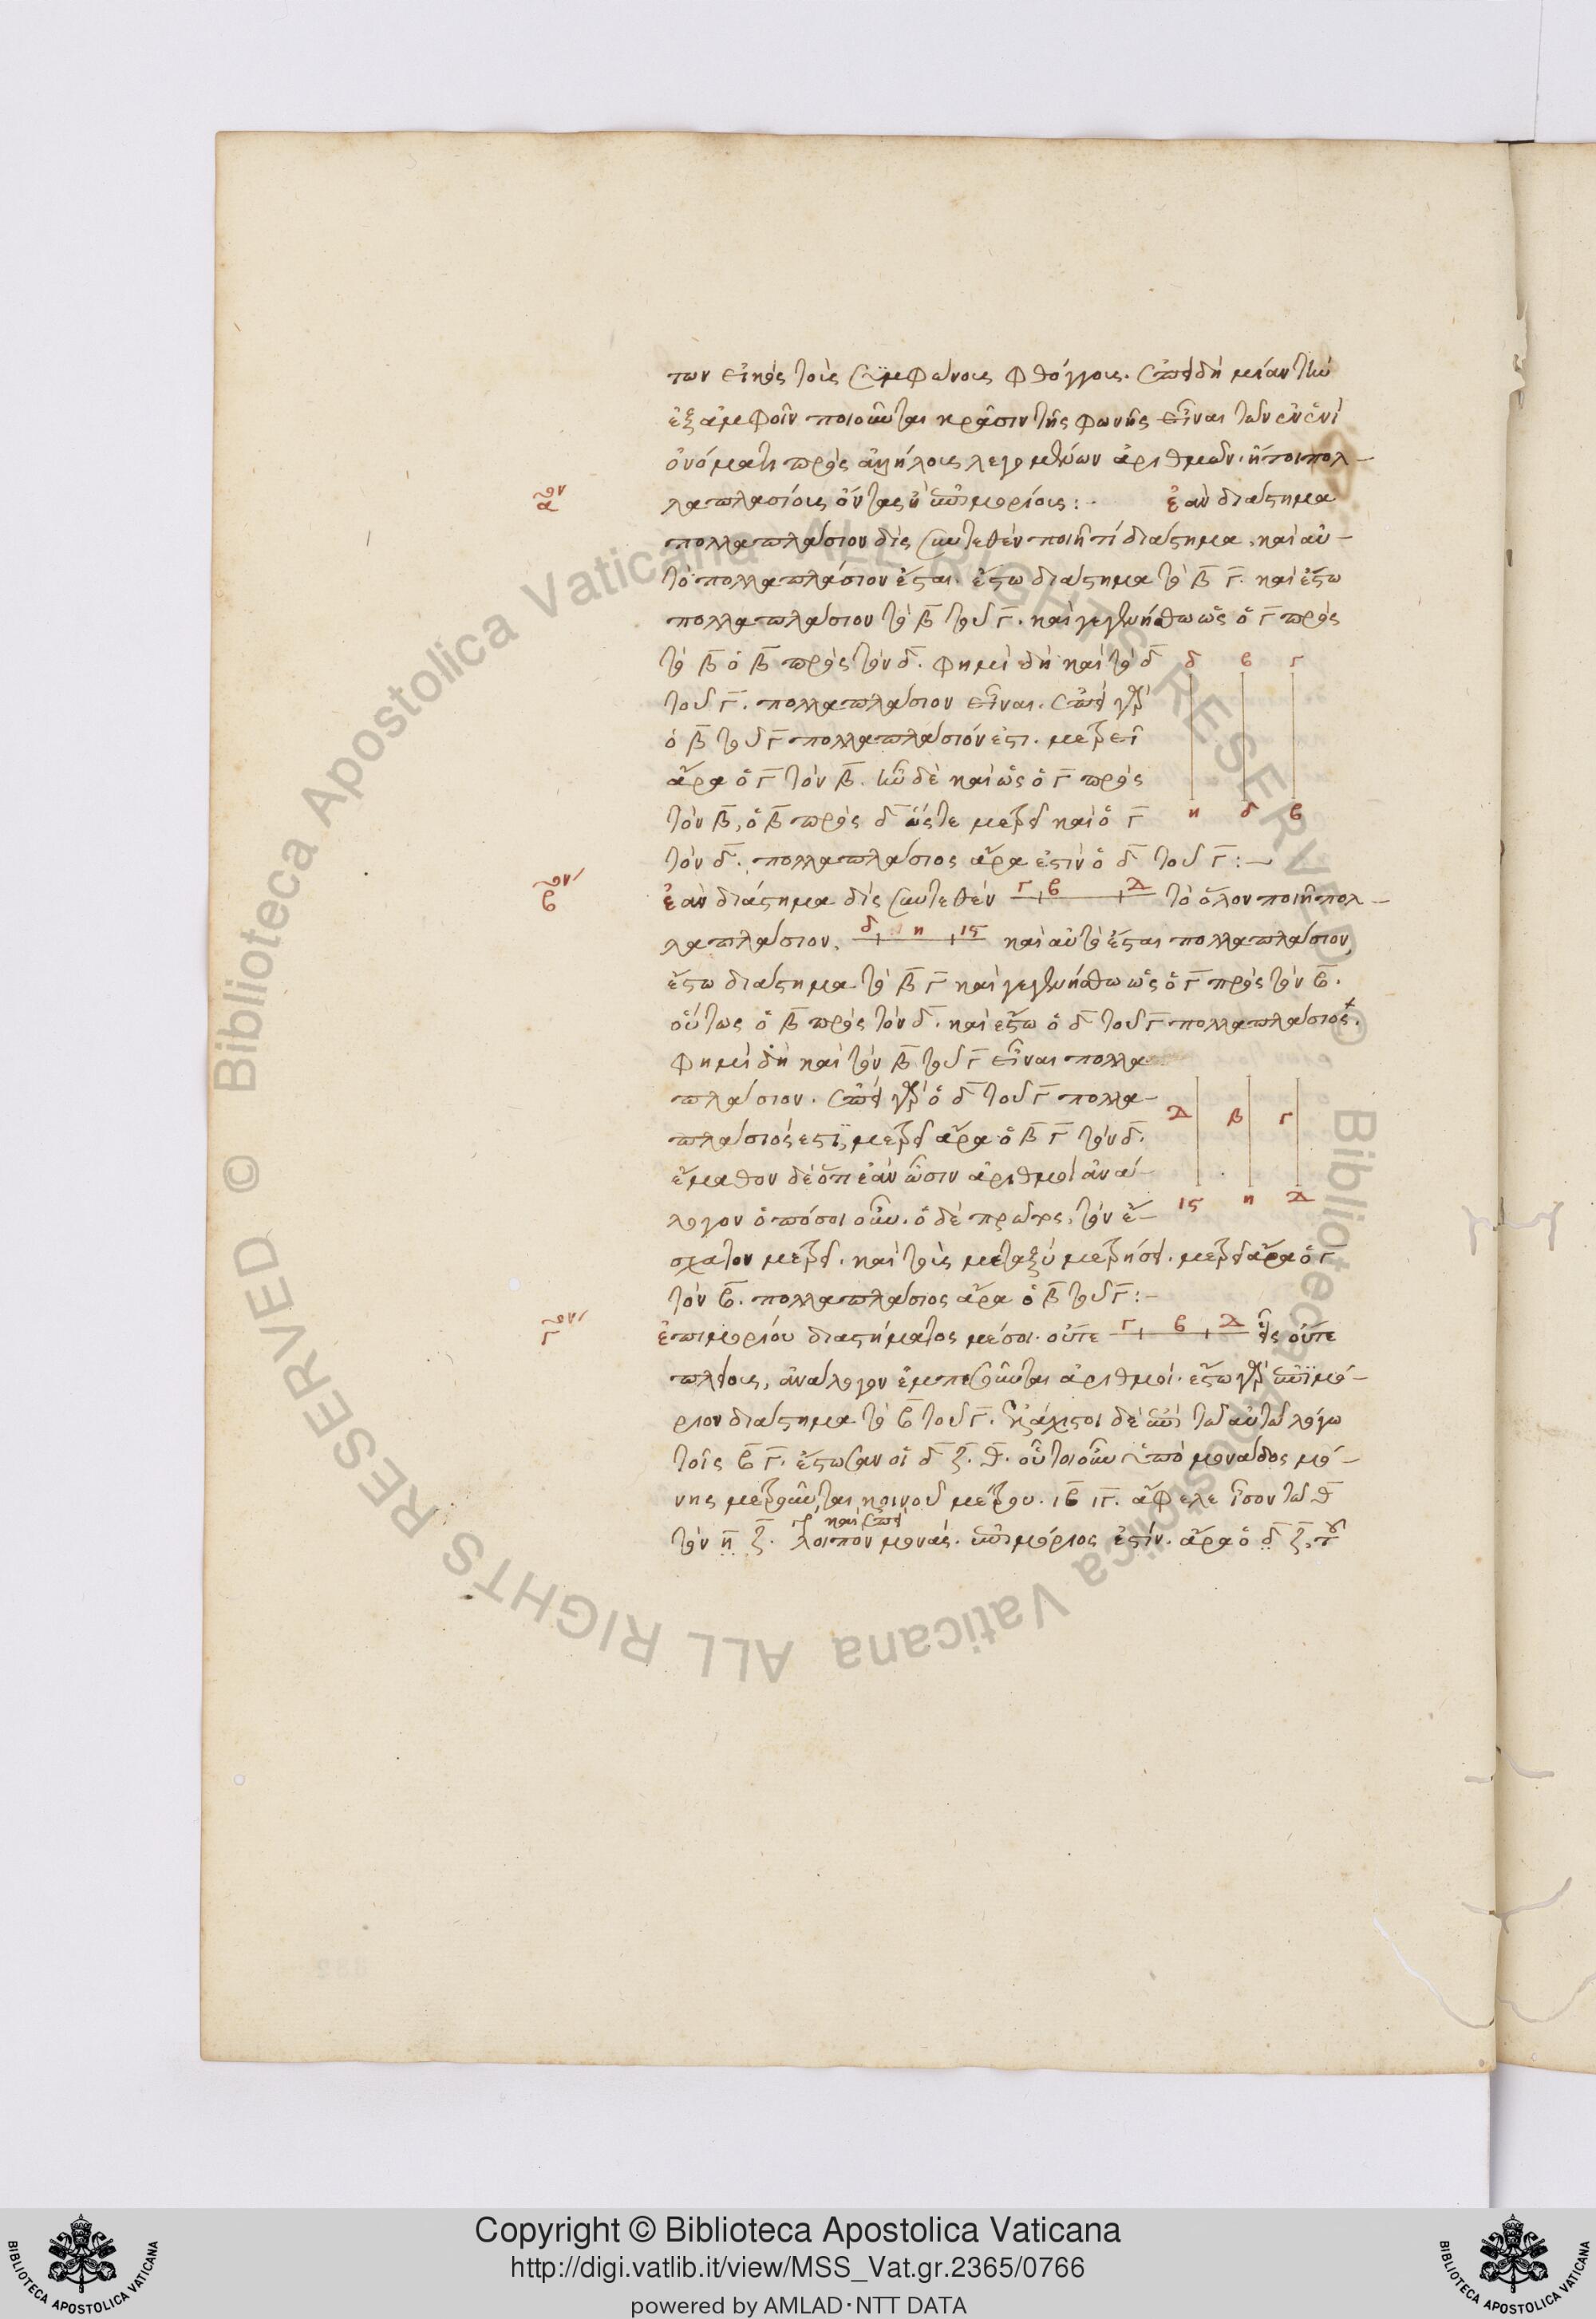 των εἰκὸς τοὺς συμφώνους φθόγγους. ἐπειδὴ μίαν τὴν
ἐξ ἀμφοῖν ποιοῦνται κρᾶσιν τῆς φωνῆς εἶναι τῶν ἐν ἑνὶ
ὀνόματι πρὸς ἀλλήλους λεγομένων ἀριθμῶν. ἤτοι πολ-
ᾶον
λαπλασίους ὄντας ἢ ἐπιμορίους :- ἐὰν διάστημα
πολλαπλάσιον δὶς συντεθὲν ποιῇ τί διάστημα, καὶ αὐ-
τὸ πολλαπλάσιον ἔσται. ἔστω διάστημα τὸ β̅ γ̅. καὶ ἔστω
πολλαπλάσιον τὸ β̅ τοῦ γ̅. καὶ γεγενήσθω ὡς ὁ γ̅ πρὸς
τὸ β̅ ὁ β̅ πρὸς τὸν δ̅. φημὶ δὴ καὶ τὸ δ̅
δ β γ
τοῦ γ̅. πολλαπλάσιον εἶναι. ἐπεὶ γὰρ
ὁ β̅ τοῦ γ̅ πολλαπλάσιόν ἐστι. μετρεῖ
ἄρα ὁ γ̅ τὸν β̅. ἦν δὲ καὶ ὡς ὁ γ̅ πρὸς
τὸν β̅, ὁ β̅ πρὸς δ̅ ὥστε μετρεῖ καὶ ὁ γ̅
η δ β
τὸν δ̅. πολλαπλάσιος ἄρα ἐστὶν ὁ δ̅ τοῦ γ̅ :-
β͂ον
ἐὰν διάστημα δὶς συντεθὲν γ β Δ τὸ ὅλον ποιῇ πολ-
λαπλάσιον, δ η ις καὶ αὐτὸ ἔσται πολλαπλάσιον,
ἔστω διάστημα τὸ β̅ γ̅ καὶ γεγενήσθω ὡς ὁ γ̅ πρὸς τὸν β̅.
οὕτως ὁ β̅ πρὸς τὸν δ̅. καὶ ἔστω ὁ δ̅ τοῦ γ̅ πολλαπλάσιος.
φημὶ δὴ καὶ τὸν β̅ τοῦ γ̅ εἶναι πολλα
πλάσιον. ἐπεὶ γὰρ ὁ δ̅ τοῦ γ̅ πολλα-
Δ β γ
πλάσιός ἐστι, μετρεῖ ἄρα ὁ β̅ γ̅ τὸν δ̅.
ἔμαθον δὲ ὅτι ἐὰν ὦσιν ἀριθμοὶ ἀνά-
λογον ὁπόσοι οὖν. ὁ δὲ πρῶτος, τὸν ἔ-
ις η Δ
σχατον μετρεῖ. καὶ τοὺς μεταξὺ μετρήσει. μετρεῖ ἄρα ὁ γ̅
τὸν β̅. πολλαπλάσιος ἄρα ὁ β̅ τοῦ γ̅ :-
γ͂ον
ἐπιμορίου διαστήματος μέσοι. οὔτε γ β Δ εἷς οὔτε
πλείους, ἀνάλογον ἐμπεσοῦνται ἀριθμοί. ἔστω γὰρ ἐπιμό-
ριον διάστημα τὸ β̅ τοῦ γ̅. ἐλάχιστοι δὲ ἐπὶ τῶ αὐτῶ λόγω
τοῖς β̅ γ̅. ἔστωσαν οἱ δ̅ ζ̅. θ̅. οὗτοι οὖν ὑπὸ μονάδος μό-
νης μετροῦνται κοινοῦ μέτρου. ιβ̅ ιγ̅. ἄφελε ἴσον τῶ θ̅
καὶ ἐπεὶ
τὸν η̅ ζ̅. λοιπον μονάς. ἐπιμόριος ἐστίν. ἄρα ὁ δ̅ ζ̅, τοῦ